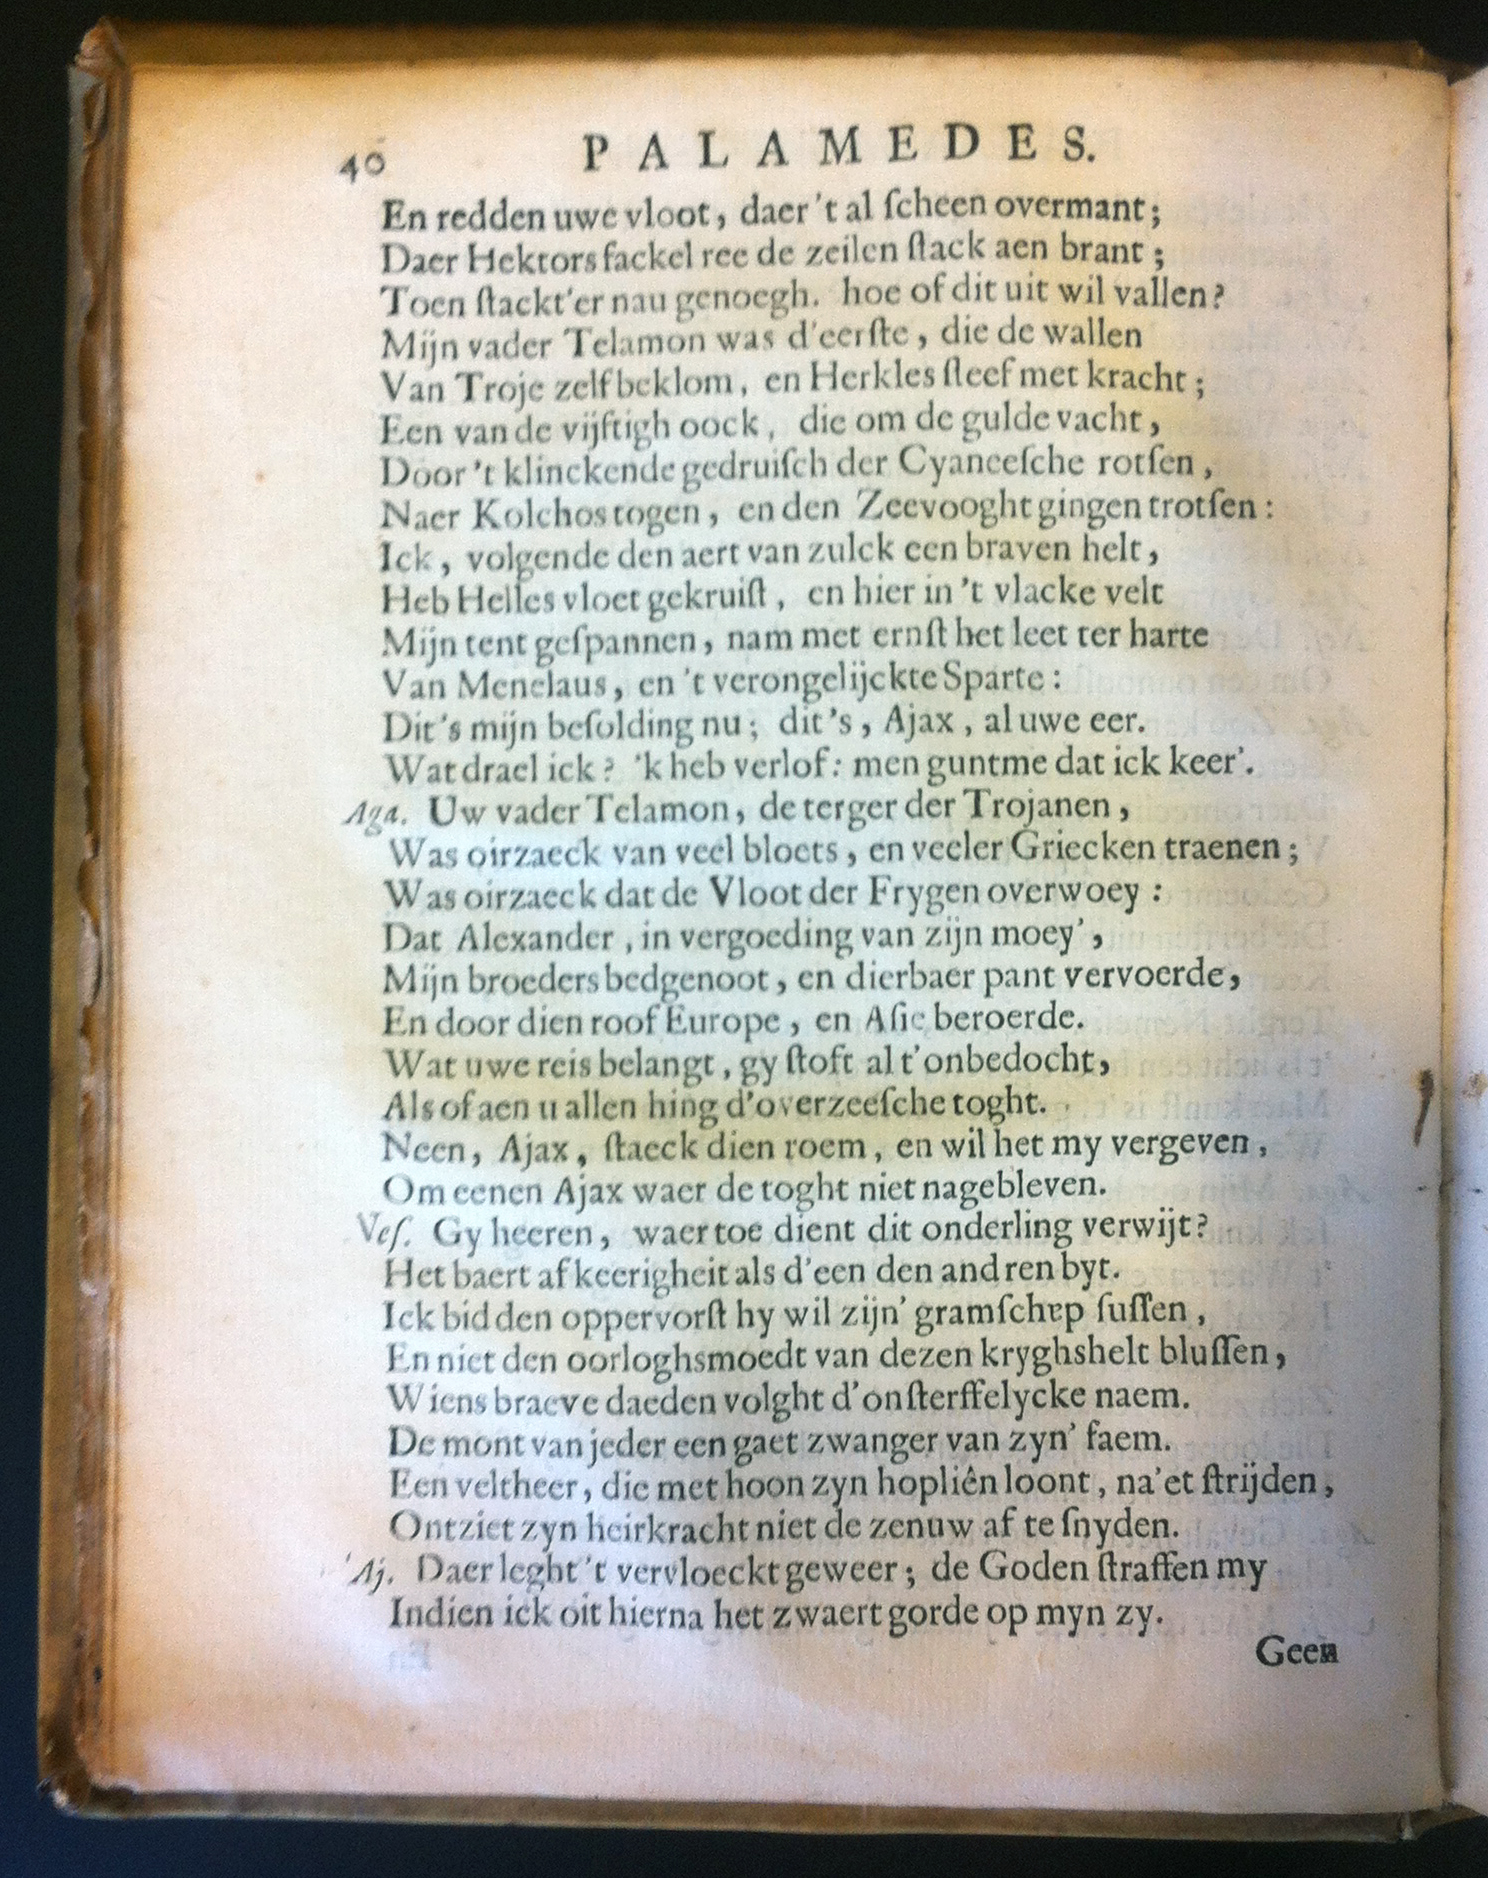 40 PALAMEDES.
En redden uwe vloot, daer 't al ſcheen overmant;
Daer Hektors fackel ree de zeilen ſtack aen brant;
Toen ſtackt'er nau genoegh. hoe of dit uit wil vallen?
Mijn vader Telamon was d'eerſte, die de wallen
Van Troje zelf beklom, en Herkles ſteef met kracht;
Een van de vijftigh oock, die om de gulde vacht,
Door 't klinckende gedruiſch der Cyaneeſche rotſen,
Naer Kolchos togen, en den Zeevooght gingen trotſen:
Ick, volgende den aert van zulck een braven helt,
Heb Helles vloet gekruiſt, en hier in 't vlacke velt
Mijn tent geſpannen, nam met ernſt het leet ter harte
Van Menelaus, en 't verongelijckte Sparte:
Dit's mijn beſolding nu; dit's, Ajax, al uwe eer.
Wat drael ick? 'k heb verlof: men gunt me dat ick keer'.
Aga. Uw vader Telamon, de terger der Trojanen,
Was oirzaeck van veel bloets, en veeler Griecken traenen;
Was oirzaeck dat de Vloot der Frygen overwoey:
Dat Alexander, in vergoeding van zijn moey',
Mijn broeders bedgenoot, en dierbaer pant vervoerde,
En door dien roof Europe, en Aſie beroerde.
Wat uwe reis belangt, gy ſtoft al t'onbedocht,
Als of aen u allen hing d'overzeeſche toght.
Neen, Ajax, ſtaeck dien roem, en wil het my vergeven,
Om eenen Ajax waer de toght niet nagebleven.
Veſ. Gy heeren, waer toe dient dit onderling verwijt?
Het baert afkeerigheit als d'een den andren byt.
Ick bid den oppervorſt hy wil zijn' gramſchep ſuſſen,
En niet den oorloghsmoedt van dezen kryghshelt bluſſen,
Wiens braeve daeden volght d'onſterffelycke naem.
De mont van jeder een gaet zwanger van zyn' faem.
Een veltheer, die met hoon zyn hopliên loont, na'et ſtrijden,
Ontziet zyn heirkracht niet de zenuw af te ſnyden.
Aj. Daer leght 't vervloeckt geweer; de Goden ſtraffen my
Indien ick oit hierna het zwaert gorde op myn zy.
Geen